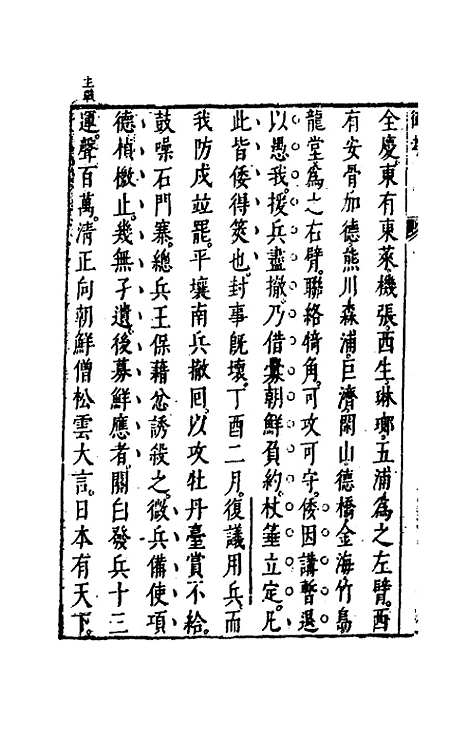 主戰
全慶。東有東萊、機張、西生、琳瑯、五浦爲之左臂。西
有安骨加德熊川森浦。巨濟閑山德橋金海竹島
龍堂爲之右臂。聯絡犄角。可攻可守。倭因講暫退
以愚我。援兵盡撤。乃借釁朝鮮負約。杖箠立定。凡
此皆倭得筴也。封事旣壞。丁酉二月。復議用兵。而
我防戍竝罷。平壤南兵撤囘。以攻牡丹臺賞不給。
鼓噪石門寨。總兵王保藉忿誘殺之。徵兵備使項
德楨檄止。幾無孑遺。後募鮮應者。關白發兵十三
運。聲百萬。清正向朝鮮僧松雲大言。日本有天下。